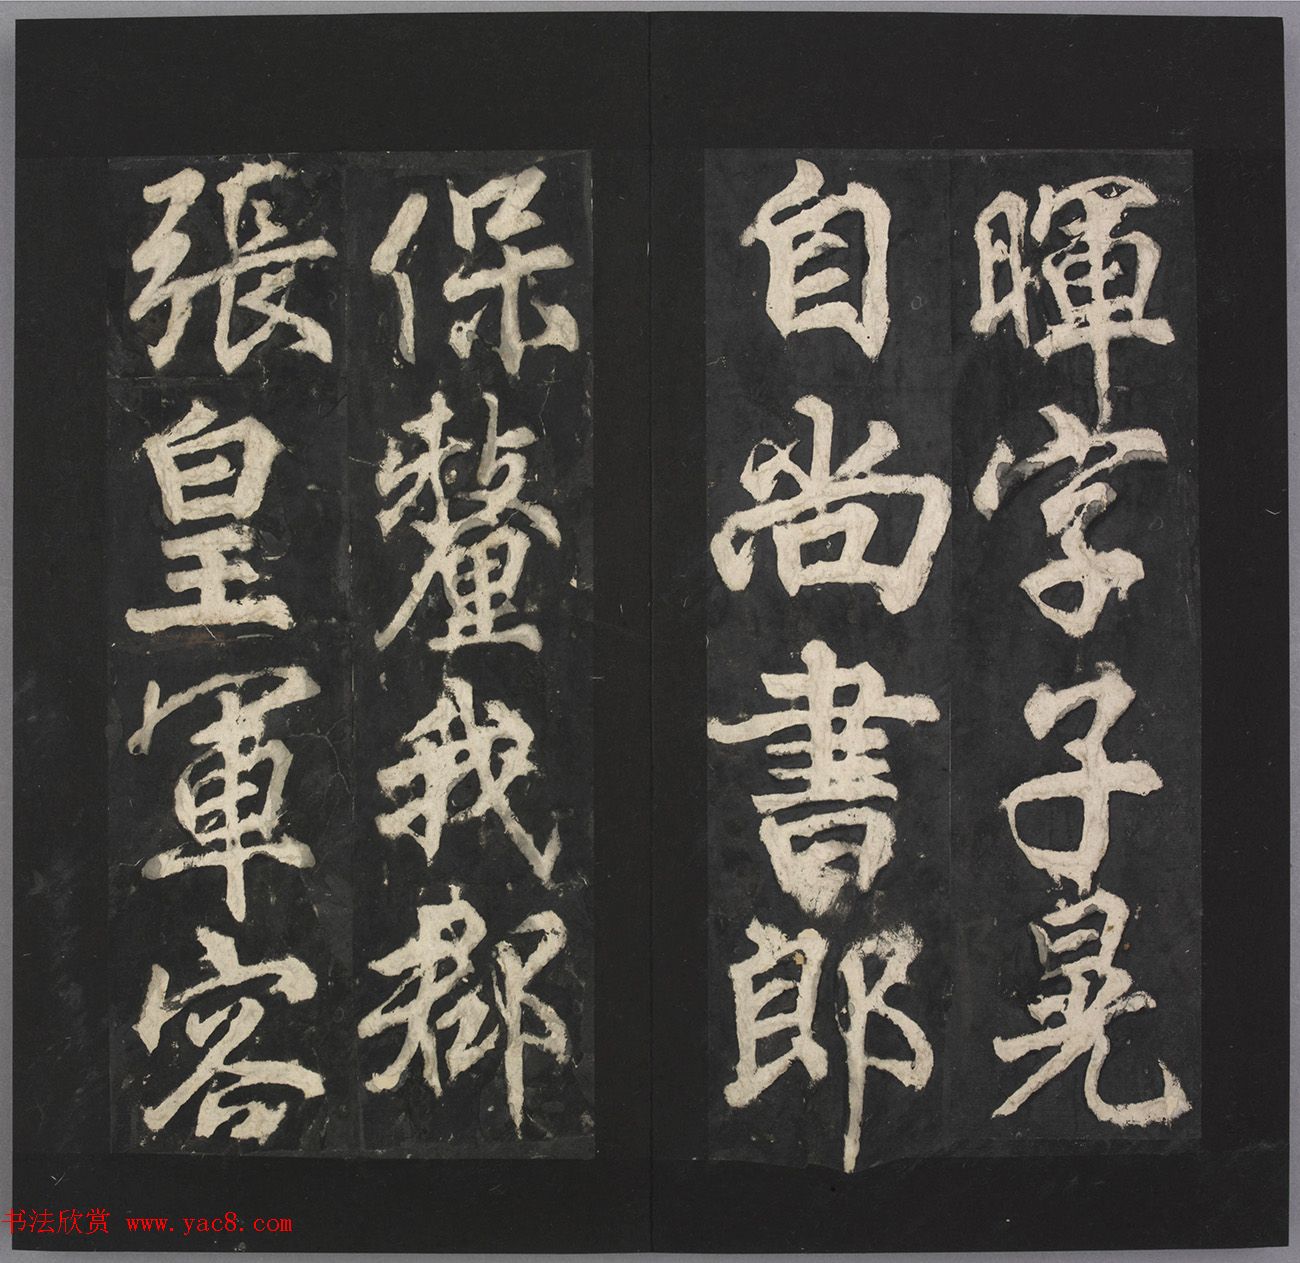 暉字子晃
自尚書郎
保釐我郡
張皇軍容
书法欣赏 www.yac8.com